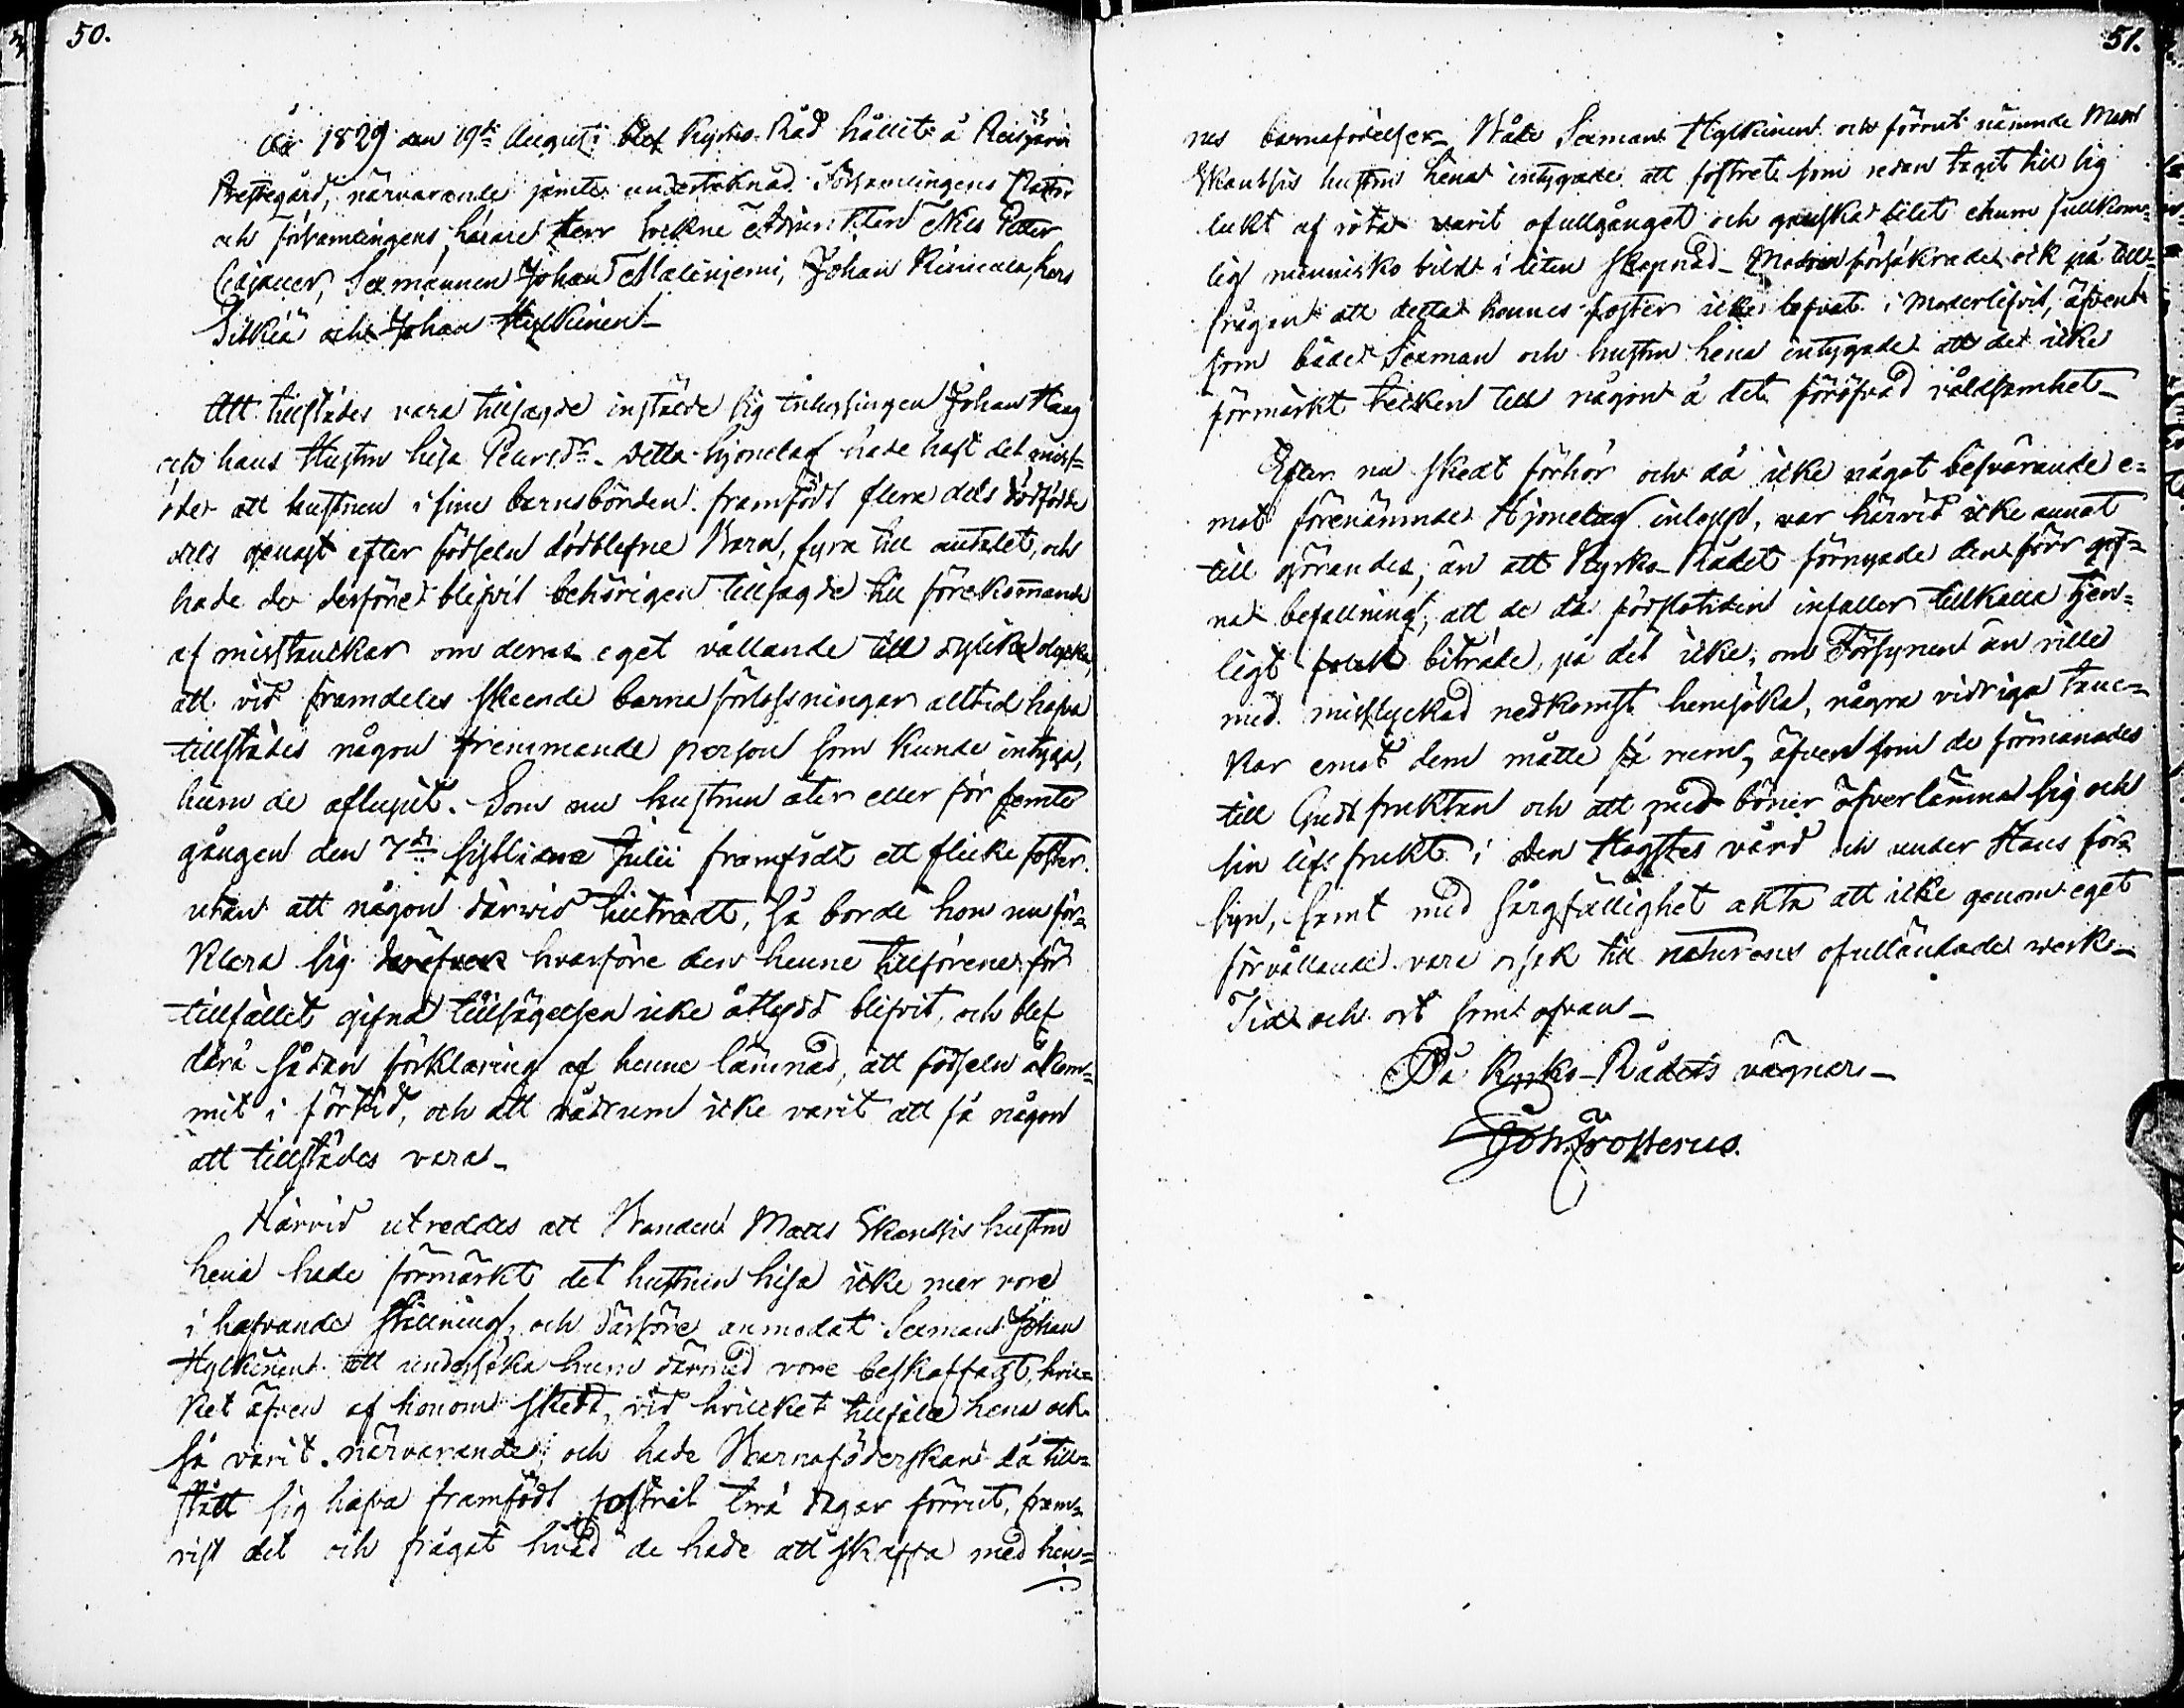 50.
År 1829 den 19de Augusti blef Kyrko-Råd hållit å Reisjärvi
Prestegård, närvarande jemte undertecknad Församlingens Pastor
och församlingens härare Herr Sockne Adjuncten Nils Petter
Cajaner, Sexmännen Johan Malinjemi, Johan Kinnula, Lars
Silkiä och Johan Hylkinen_
Att tillstädes vara tillsagde instälde sig inhysingen Johan Haag
och hans Hustru Lisa Pehrsdr. Detta hjonelag hade haft det miss=
öde att hustrun i sine barnsbörden framfödt flera dels dödfödde
dels genast efter födseln dödblefne Barn, fyra till antalet, och
hade de desföre blifvit behörigen tillsagde till förekommande
af misstankar om deras eget vållande till dylika olycka,
att vid framdeles skeende barnaförlossningar alltid hafva
tillstädes någon främmande person som kunde intyga,
huru de aflupit. Som nu hustrun åter eller för femte
gången den 7de sistlidne Julii framfödt ett flicke foster
utan att någon därvid tillträdt, så borde hon nu för=
klara sig hvarföre den henne tillförene för
tillfället gifna tillsägelsen icke åtlydd blifvit, och blef
därå sådan förklaring af henne lämnad, att födseln åkom=
mit i förtid, och att rådrum icke varit att få någon
att tillstädes vara_
Härvid utreddes att Bonden Matts Skantsis hustru
Lena hade förmärkt det hustrun Lisa icke mer vore
i hafvande ställning, och därföre anmodat Sexman Johan
Hylkinen att undersöka huru därmed vore beskaffat, hvil=
ket äfven af honom skedt, vid hvilcket tillfälle Lena ock
så varit närvarande och hade Barnaföderskan då till=
stått sig hafva framfödt fostret två dagar förrut, fram=
vist det och frågat hvad de hade att skaffa med hen=
51.
nes barnafödelser_ Både Sexman Hylkinen och förrut nämnde Matts
Skantsis hustru Lena intygade att fostret som redan taget till sig
lukt af röta varit ofullgånget och ganska litet ehuru fullkom=
lig menniskobild i liten skapnad_ Modren försäkrade ock på till=
frågan att detta hennes foster icke lefvat i Moderlifvit, äfven
som både Sexman och hustru Lena intygade att de icke
förmärkt tecken till någon å det föröfvad våldsamhet_
Efter nu skedt förhör och då icke något besvärande e=
mot förenämnde Hjonelag inlupit, var härvid icke annat
till görandes, än att Kyrko-Rådet förnyade den förr gif=
na befallning, att de då födslotiden infaller tillkalla tjen=
ligt biträde, på det icke, om Försynen än ville
med misslyckad nedkomst hemsöka, några vidriga tanc=
kar emot dem måtte få rum, äfven som de förmanades
till Gudsfruktan och att med böner öfverlämna sig och
sin lifsfrukt i den Högstes vård och under Hans för=
syn, samt med sorgfällighet akta att icke genom eget
förvållande vara orsak till naturens ofulländade verk_
Tid och ort som ofvan_
På Kyrko-Rådets vägnar_
Joh. Frosterus.